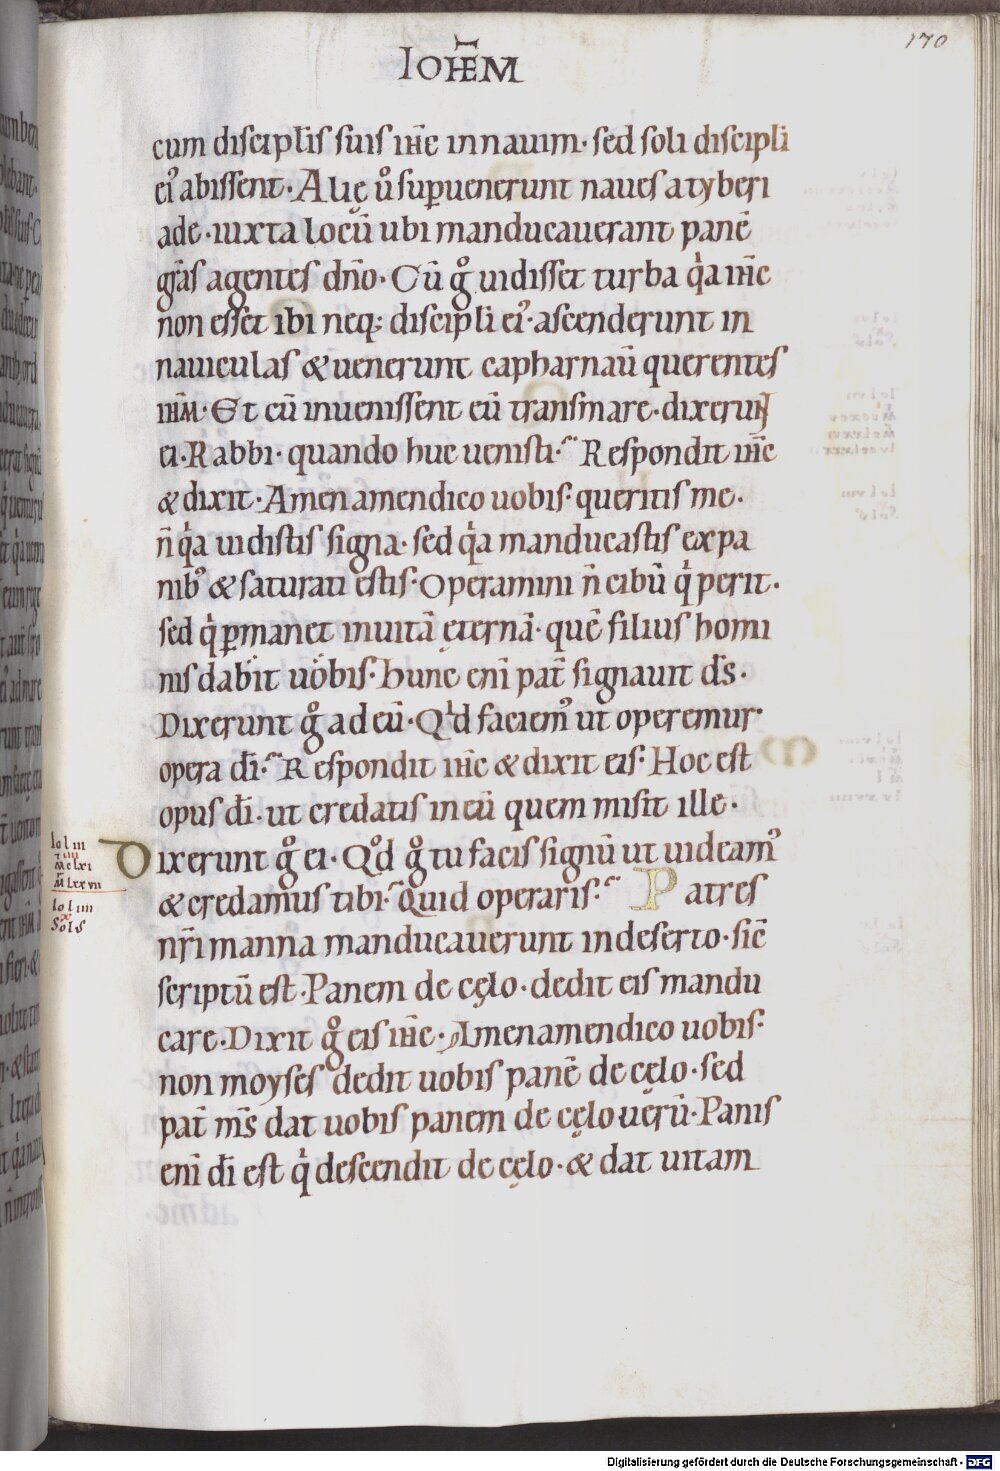 170
IOHĒM
cum discipl̄is suis ih̄c in nauim· sed soli discipl̄i
ei᾽ abissent· Alie̜ ů sup̱uenerunt naues a tyberi
ade· iuxta locū ubi manducauerant panē
gr̄as agentes dn̄o· Cū gͦ uidisset turba qͥa ih̄c
non esset ibi neq; discipl̄i ei᾽· ascenderunt in
nauiculas & uenerunt capharnaū querentes
ih̄m· Et cū inuenissent eū transmare· dixerunt
ei· Rabbi· quando huc uenisti· Respondit ih̄c
& dixit· Amen amen dico uobis· queritis me·
n̄ qͥa uidistis signa· sed qͥa manducastis ex pa
nib᾽ & saturati estis· Operamini n̄ cibū qͥ perit·
sed qͥ p̱manet in uitā e̜ternā· quē filius homi
nis dabit uobis· hunc eni̅ pat̄ signauit d̄s·
Dixerunt gͦ ad eū· Qd faciem᾽ ut operemur·
opera di̅· Respondit ih̄c & dixit eis· Hoc est
opus di̅· ut credatis in eū quem misit ille·
Dixerunt gͦ ei· Qͦd gͦ tu facis signū ut uideam᾽
& credamus tibi· Quid operaris· Patres
nr̄i manna manducauerunt in deserto· sic̄
scriptū est· Panem de ce̜lo· dedit eis mandu
care· Dixit gͦ eis ih̄c· Amen amen dico uobis·
non moyses dedit uobis panē de ce̜lo· sed
pat̄ m̄s dat uobis panem de ce̜lo ue̜rū· Panis
eni̅ di̅ est qͥ descendit de ce̜lo· & dat uitam
Digitalisierung gefördert durch die Deutsche Forschungsgemeinschaft - DFG